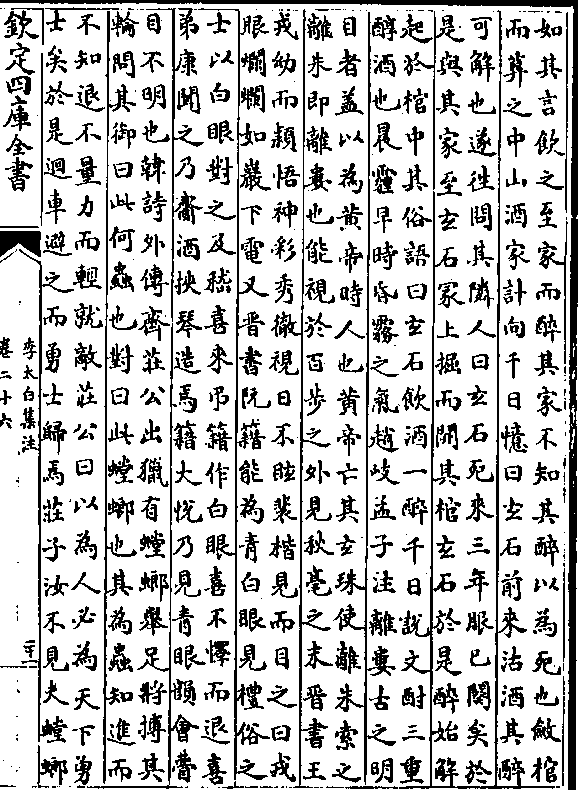 如其言飲之至家而醉其家不知其醉以為死也斂棺
而葬之中山酒家計向千日憶曰玄石前來沽酒其醉
可解也遂徃問其隣人曰玄石死來三年服已闋矣於
是與其家至玄石冢上掘而開其棺玄石於是醉始解
起於棺中其俗語曰玄石飲酒一醉千日說文酎三重
醇酒也晨霾早時昏霧之氣趙岐孟子注離婁古之明
目者葢以為黄帝時人也黄帝亡其玄珠使離朱索之
離朱即離婁也能視於百步之外見秋毫之末晉書王
戎幼而頴悟神彩秀徹視日不眩裴楷見而目之曰戎
眼爛爛如巖下電又晉書阮籍能為青白眼見禮俗之
士以白眼對之及嵇喜來弔籍作白眼喜不懌而退喜
弟康聞之乃齎酒挾琴造焉籍大悦乃見青眼顔㑹瞢
目不明也韓詩外傳齊莊公出獵有螳螂舉足將搏其
輪問其御曰此何蟲也對曰此螳螂也其為蟲知進而
不知退不量力而輕就敵莊公曰以為人必為天下勇
士矣於是迴車避之而勇士歸焉莊子汝不見夫螳螂
欽定四庫全書
李太白集注
卷二十六